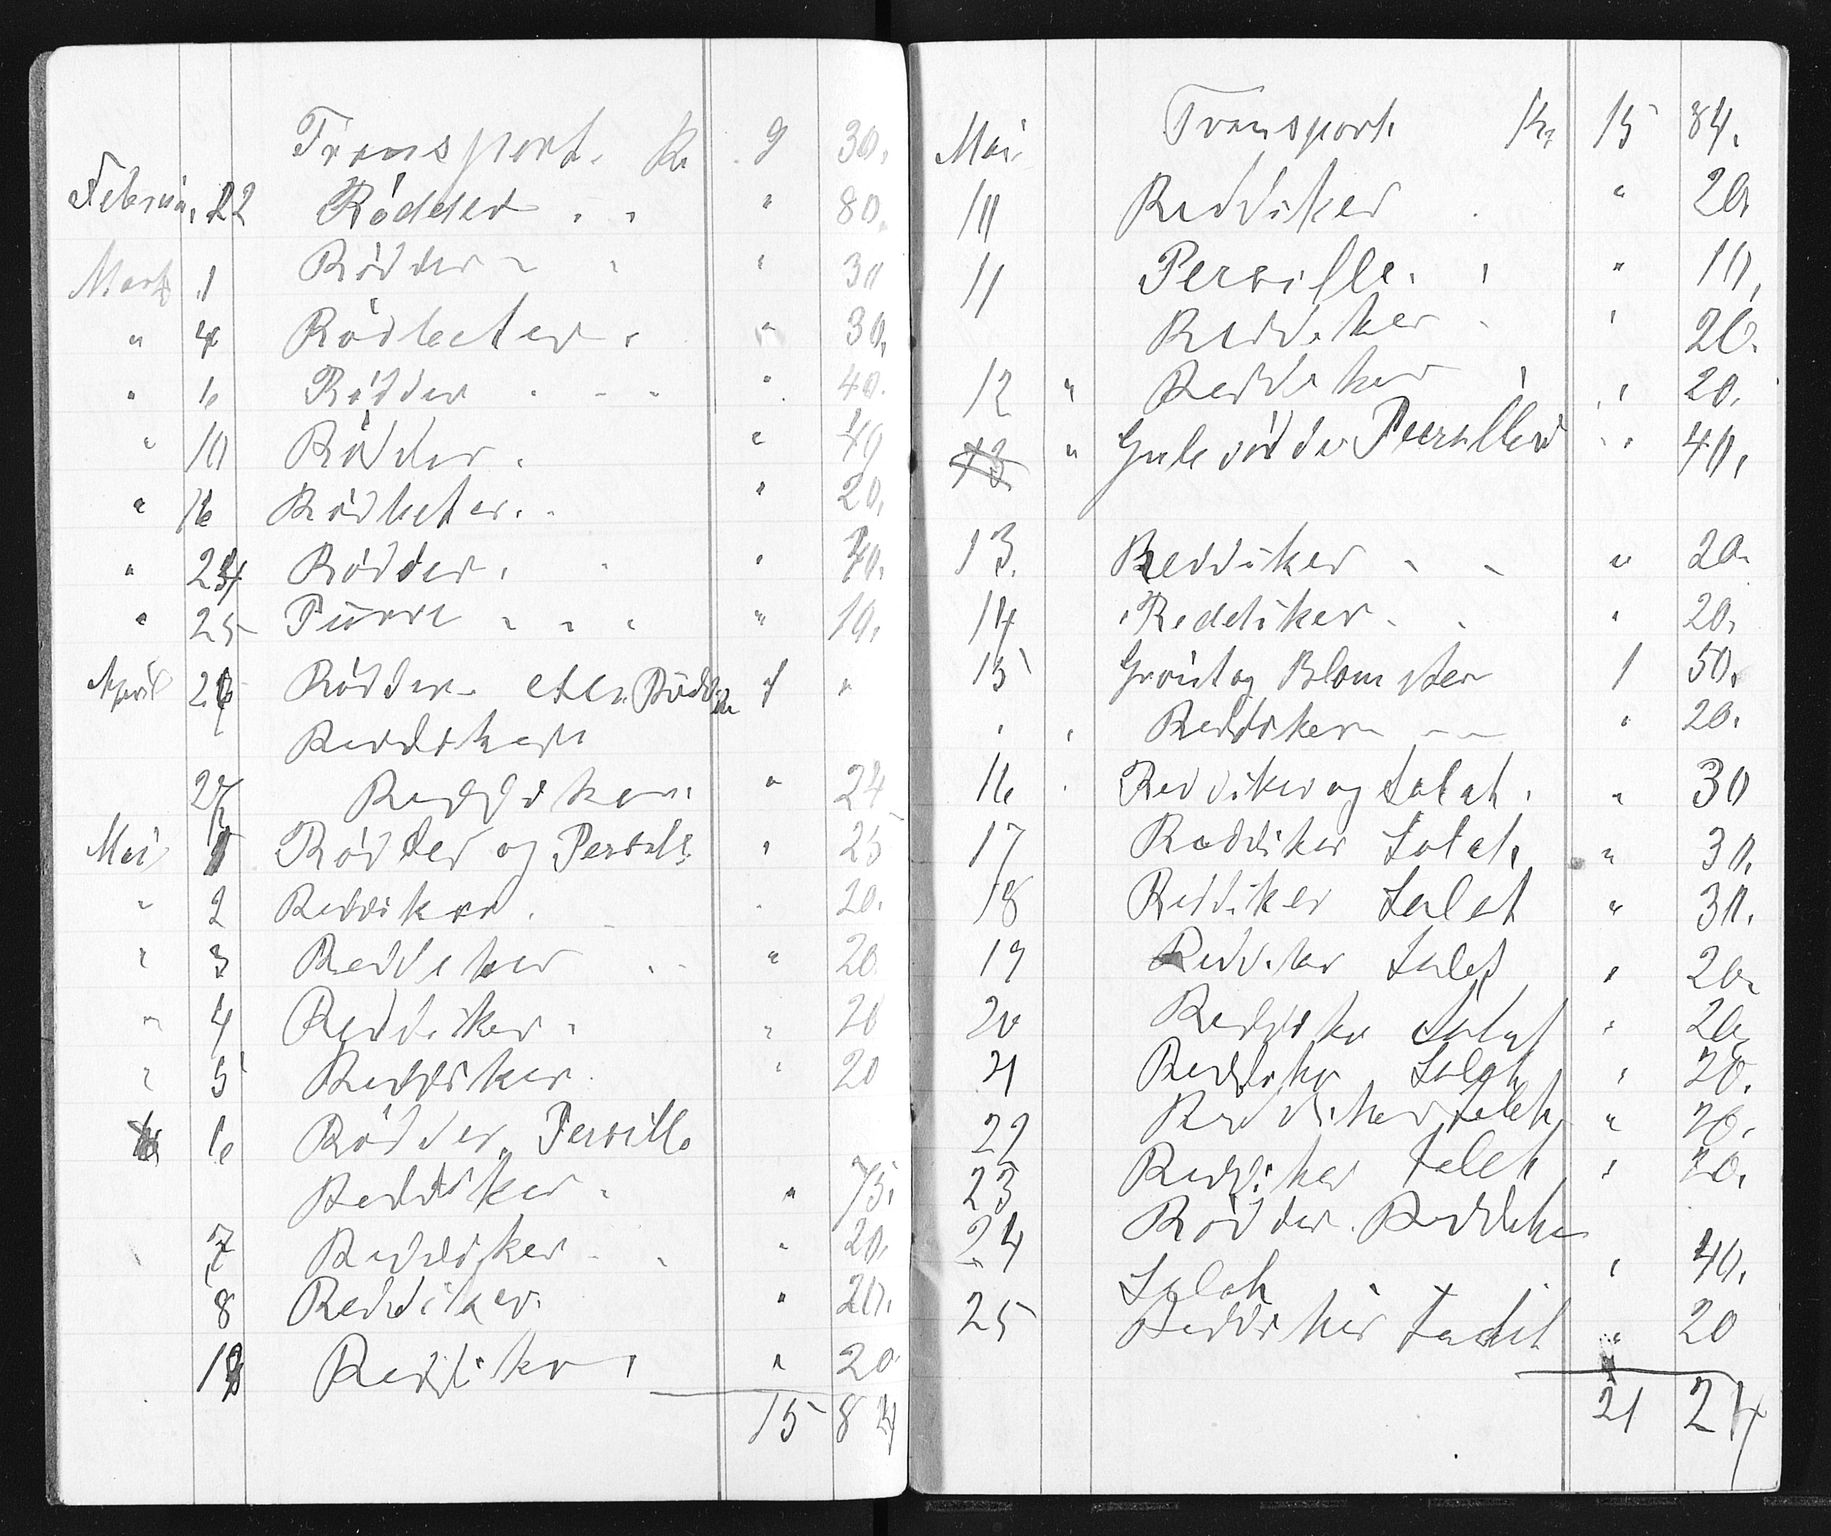 Transport. Kr. 9 30.
Februar. 22 Rødder . . " 80.
Marts 1 Rødder - . " 30
" 4 Rødbeter . " 30,
" 6 Rødder . - - " 40.
" 10 Rødder . " 40
" 16 Rødbeter. . " 20.
" 24 Rødder . . " 70.
" 25 Purre . . . " 10.
April 26 Rødder. 1 "
Reddiker
27 Reddiker. " 24
Mai 1 Rødder og Persille " 25
" 2 Reddiker . " 20.
" 3 Reddiker . . " 20
" 4 Reddiker . " 20
" 5 Reddiker. " 20
6 Rødder Persille
Reddiker . " 75.
7 Reddiker - . " 20.
8 Reddiker. " 20.
Reddiker . " 20
15 84
Transport. Kr. 15 84.
Mai
10 Reddiker . " 20.
11 Persille. . " 10.
Reddiker . " 20.
12 " Reddiker . " 20.
13 " Gulerødder Persille " 40.
13. Reddiker - - " 20.
14 Reddiker. . " 20.
15 Grønt og Blomster 1 50.
. . Reddiker - - " 20.
16 . Reddiker og Salat. " 30
17 Reddiker Salat. " 30.
18 Reddiker Salat " 30.
19 Reddiker Salat " 20.
20 Reddiker Salat " 20.
21 Reddiker Salat " 20.
22 Reddiker Salat " 20.
23 Reddiker Salat " 20.
24 Rødder. Reddiker
Salat " 40.
25 Reddiker Salat " 20
21 24